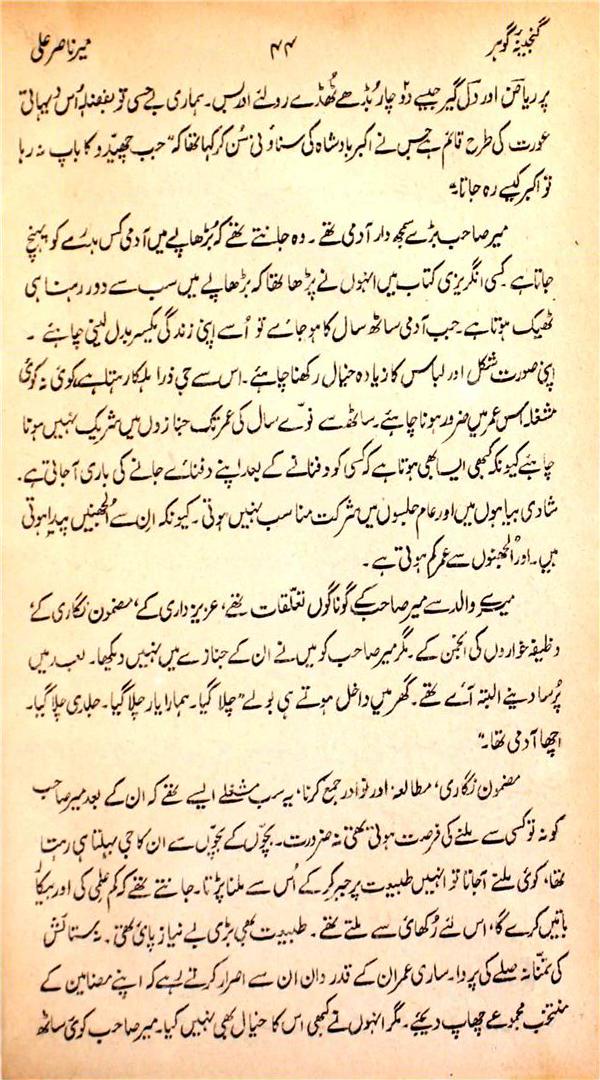 گنجینۂ گوہر ۴۴ میر ناصر علی
پر ریاض اور دل گیر جیسے دو چار بڈھے ٹھڈے رو لئے اور بس۔ ہماری بے حسی تو بفضلہٖ اُس دیہاتی
عورت کی طرح قائم ہے جس نے اکبر بادشاہ کی سناؤنی سُن کر کہا تھا کہ "جب چھیدو کا باپ نہ رہا
تو اکبر کیسے رہ جاتا۔"
میر صاحب بڑے سمجھ دار آدمی تھے۔ وہ جانتے تھے کہ بُڑھاپے میں آدمی کس ہدڑے کو پہنچ
جاتا ہے کسی انگریزی کتاب میں انہوں نے پڑھا تھا کہ بڑھاپے میں سب سے دور رہنا ہی
ٹھیک ہوتا ہے۔ جب آدمی ساٹھ سال کا ہو جائے تو اُسے اپنی زندگی یکسر بدل لینی چاہئے۔
اپنی صورت شکل اور لباس کا زیادہ خیال رکھنا چاہئے۔ اس سے جی ذرا ہلکا رہتا ہے، کوئی نہ کوئی
مشغلہ اس عمر میں ضرور ہونا چاہئے۔ ساٹھ سے نوّے سال کی عمر تک جنازوں میں شریک نہیں ہونا
چاہئے کیونکہ کبھی ایسا بھی ہوتا ہے کہ کسی کو دفنانے کے بعد اپنے دفنائے جانے کی باری آ جاتی ہے۔
شادی بیاہوں میں اور عام جلسوں میں شرکت مناسب نہیں ہوتی۔ کیونکہ اِن سے اُلجھنیں پیدا ہوتی
ہیں۔ اور اُلجھنوں سے عمر کم ہوتی ہے۔
میرے والد سے میر صاحب کے گوناگوں تعلّقات تھے، عزیز داری کے، مضمون نگاری کے،
وظیفہ خواروں کی انجمن کے۔ مگر میر صاحب کو میں نے ان کے جنازے میں نہیں دیکھا۔ بعد میں
پُرسا دینے البتہ آئے تھے۔ گھر میں داخل ہوتے ہی بولے "چلا گیا۔ ہمارا یار چلا گیا۔ جلدی چلا گیا۔
اچھا آدمی تھا۔"
مضمون نگاری، مطالعہ اور نوادر جمع کرنا، یہ سب مشغلے ایسے تھے کہ ان کے بعد میر صاحب
کو نہ تو کسی سے ملنے کی فرصت ہوتی تھی نہ ضرورت۔ بچّوں کے بچّوں سے ان کا جی بہلتا ہی رہتا
تھا، کوئی ملنے آ جاتا تو انہیں طبیعت پر جبر کر کے اُس سے ملنا پڑتا۔ جانتے تھے کہ کم علمی کی اور بیکار
باتیں کرے گا، اس لئے رُکھائی سے ملتے تھے۔ طبیعت بھی بڑی بے نیاز پائی تھی۔ نہ ستائش
کی تمنّا نہ صلے کی پروا۔ ساری عمر ان کے قدر دان ان سے اصرار کرتے رہے کہ اپنے مضامین کے
منتخب مجموعے چھاپ دیجئے۔ مگر انہوں نے کبھی اس کا خیال بھی نہیں کیا۔ میر صاحب کوئی ساٹھ